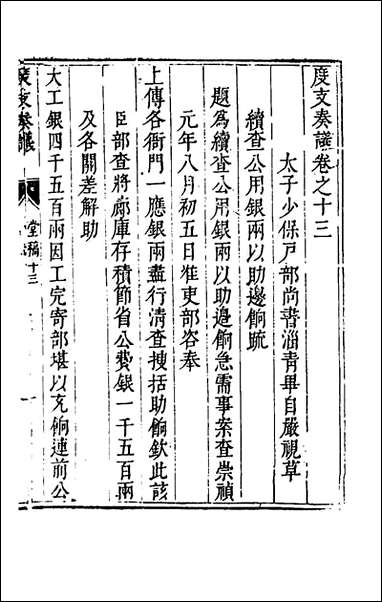 度支奏議卷之十三
太子少保戸部尚書淄青畢自嚴視草
續查公用銀兩以助邊餉疏
題為續查公用銀兩以助邊餉急需事案查崇禎
元年八月初五日准吏部咨奉
上傳各衙門一應銀兩盡行清查搜括助餉欽此該
臣部查將廊庫存積節省公費銀一千五百兩
及各關差解助
大工銀四千五百兩因工完寄部堪以充餉連前公
度支奏議
堂稿十三
一